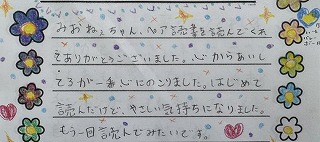 みおねぇちゃん、ペア読書を読んでくれ
てありがとうございました。心からあいし
てるが一番心にのこりました。はじめて
読んだけど、やさしい気持ちになりました。
もう一回読んでみたいです。